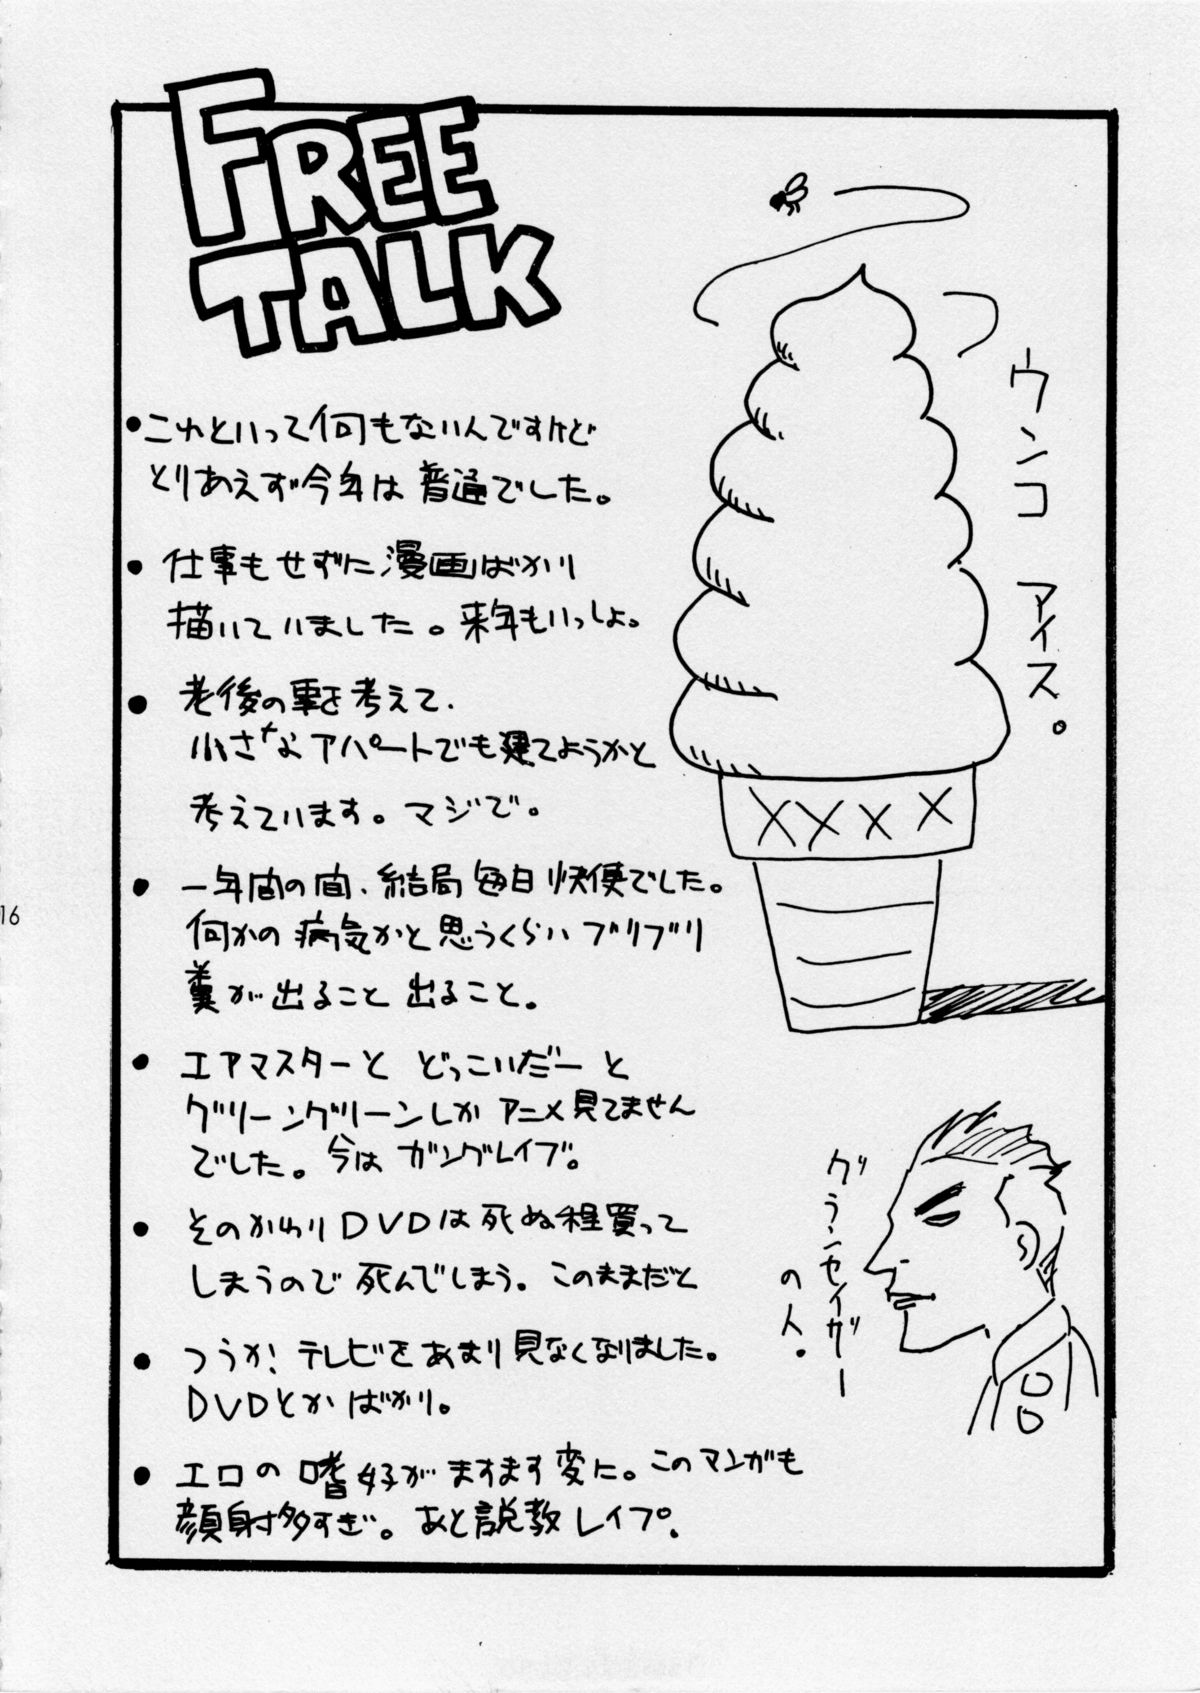 FREE
TALK
•これといって何もないんですけど
とりあえず今年は普通でした。
•仕事もせずに漫画ばかり
描いていました。来年もいっしょ。
•老後の事を考えて、
小さなアパートでも建てようかと
考えています。マジで。
•一年間の間、結局毎日快便でした。
何かの病気かと思うくらいブリブリ
糞が出ること出ること。
•エアマスターと どっこいだー と
グリーングリーンしか アニメ見てません
でした。今は ガングレイブ。
•そのかわりDVDは死ぬ程買って
しまうので死んでしまう。このままだと
•つうか!テレビをあまり見なくなりました。
DVDとかばかり。
•エロの嗜好がますます変に。このマンガも
顔射多すぎ。あと説教レイプ。
ウンコ アイス。
グランセイザー
の人.
16